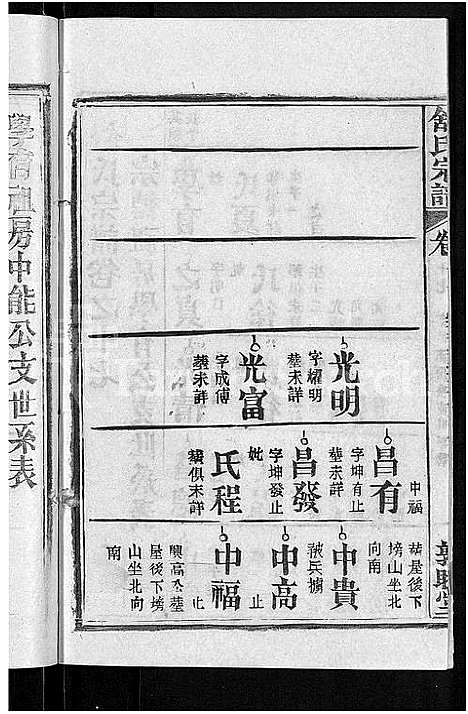 舒氏宗譜
卷
光明
字耀明
塟未詳
光富
字成傅
塟未詳
昌有
字坤有止
塟未詳
昌發
字坤發止
妣
氏程
塟俱未詳
中福
塟屋後下
塝山坐北
向南
中貴
被兵擄
中高
止
中福
止
興高仝塟
屋後下塝
山坐北向
南
學有祖房中能公支世系表